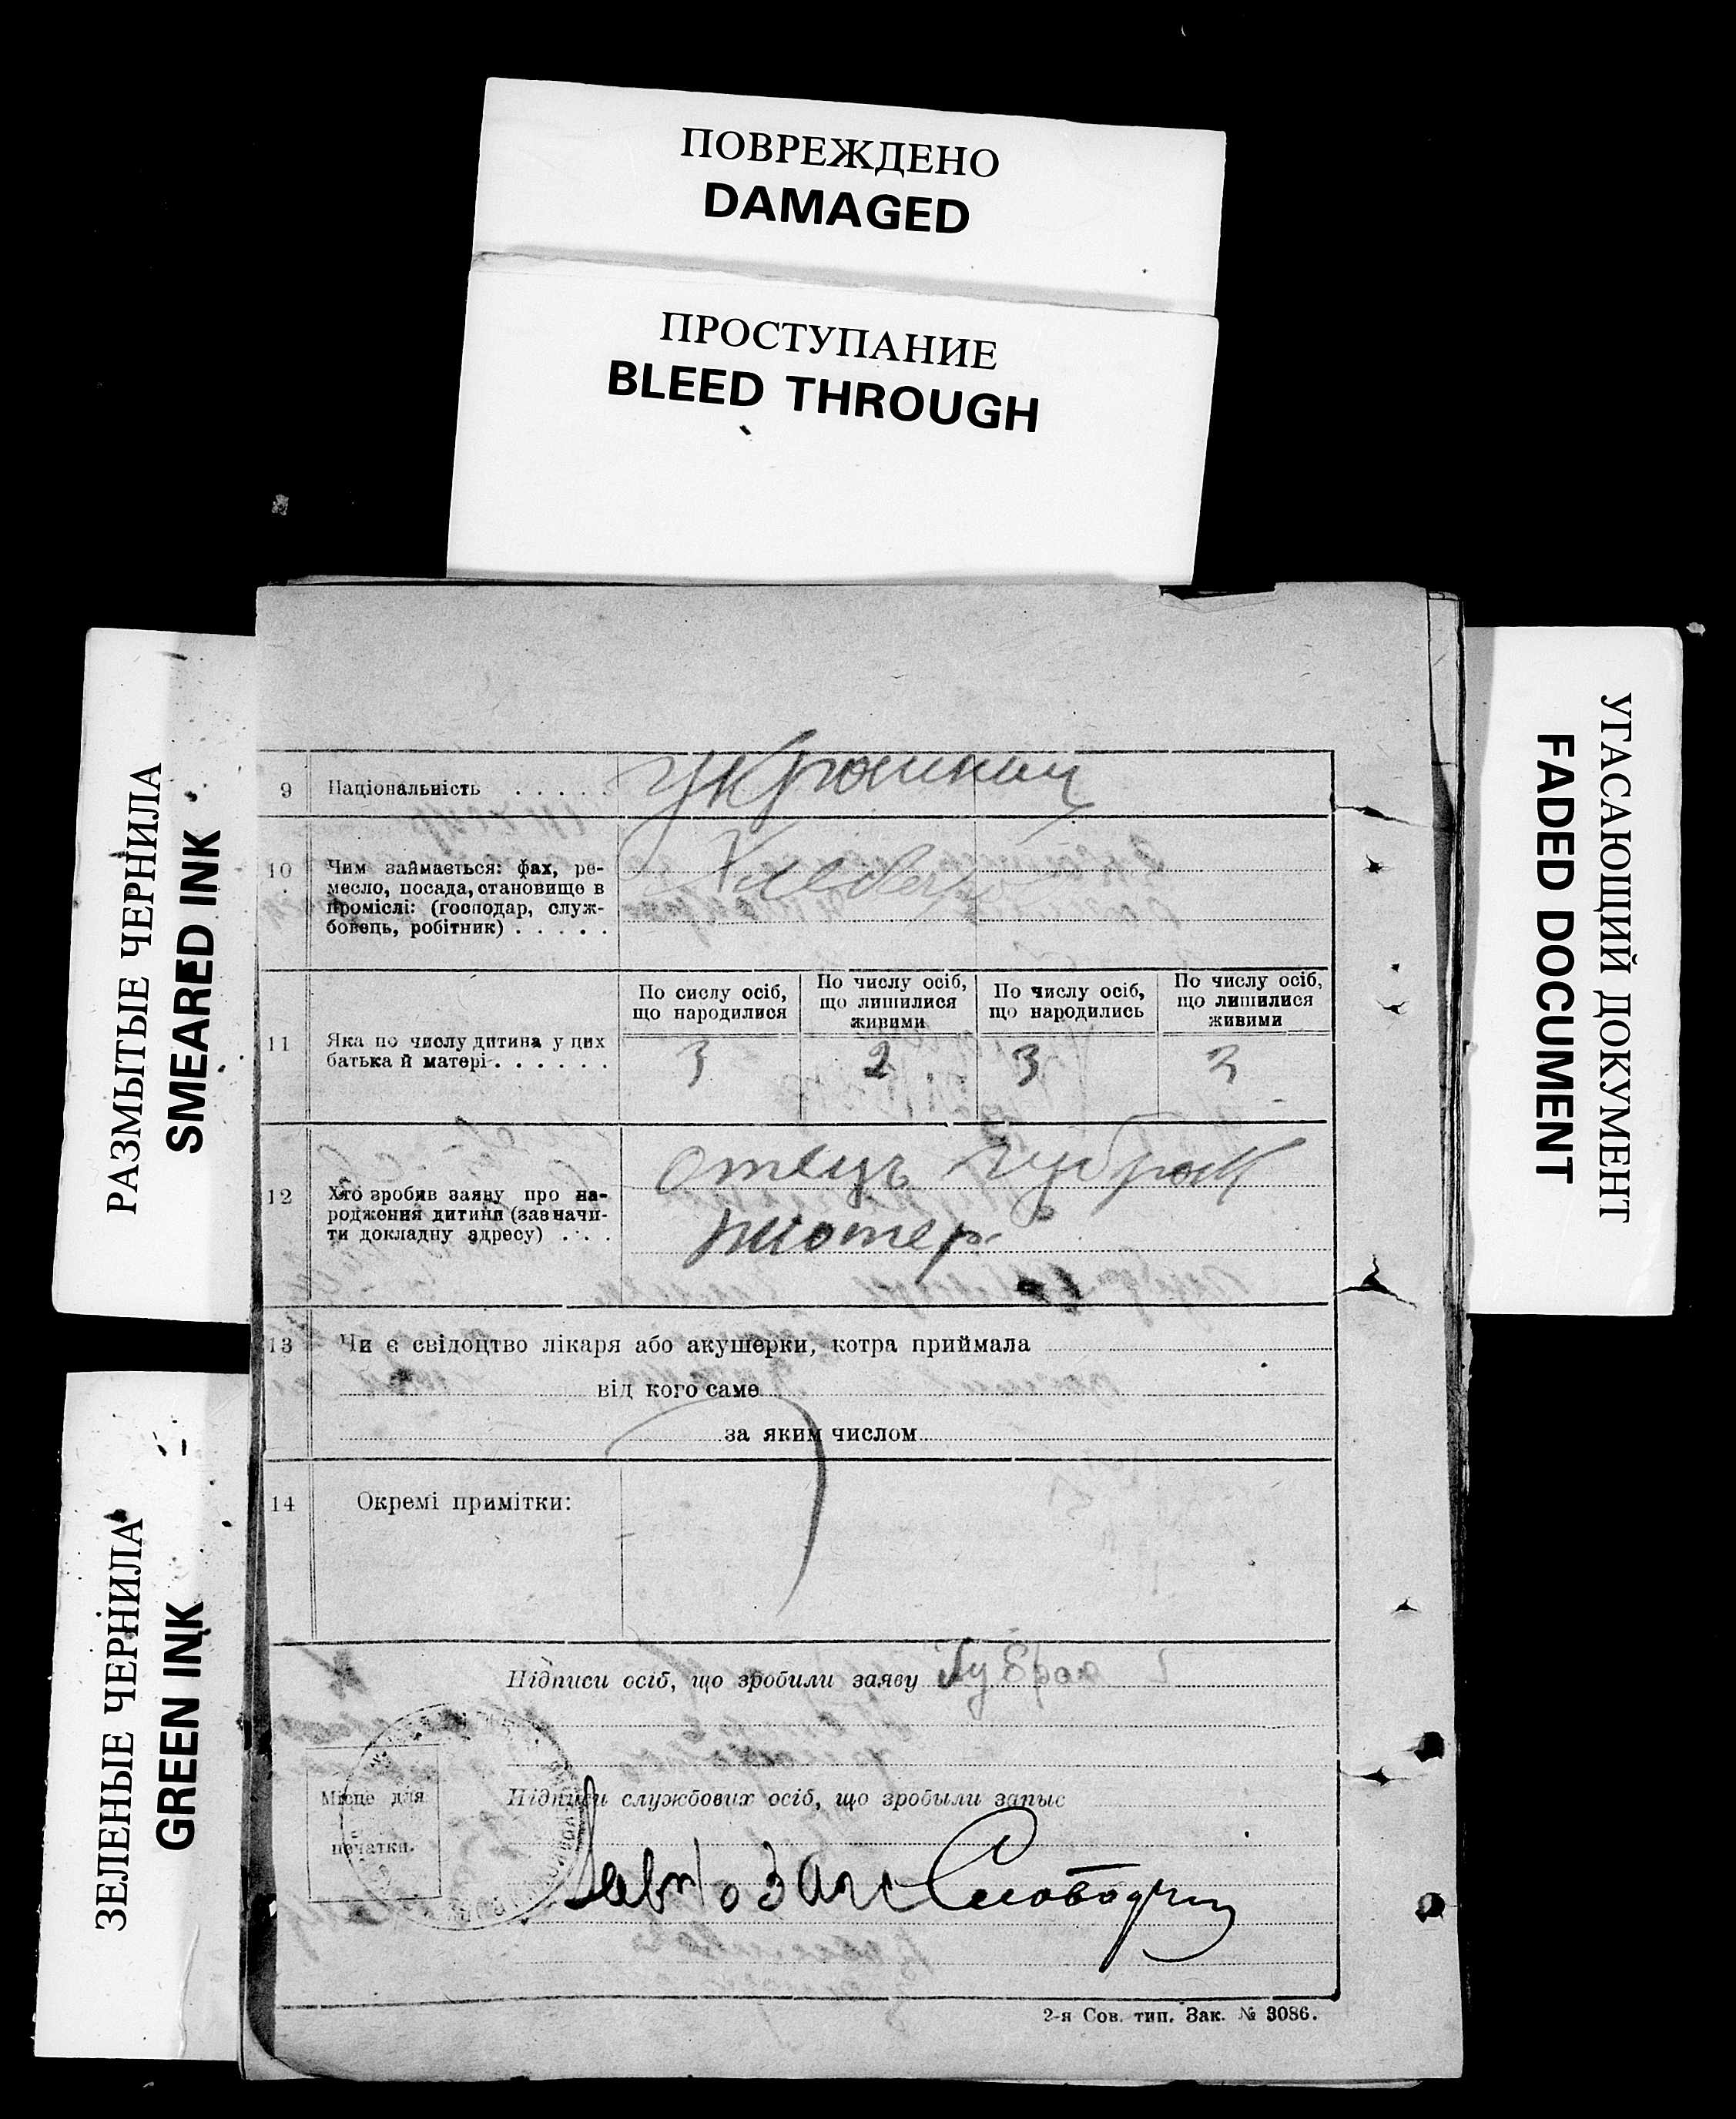 ПОВРЕЖДЕНО
DAMAGED
ПРОСТУПАНИЕ
BLEED THROUGH
РАЗМЫТЫЕ ЧЕРНИЛА
SMEARED INK
ЗЕЛЕНЫЕ ЧЕРНИЛА
GREEN INK
УГАСАЮЩИЙ ДОКУМЕНТ
FADED DOCUMENT
9 Національність . . . . .
10 Чим займається: фах, ре-
месло, посада, становище в
проміслі: (господар, служ-
бовець, робітник) . . . . .
По сислу осіб, По числу осіб, По числу осіб, По числу осіб,
що народилися що лишилися що народились що лишилися
живими живими
11 Яка по числу дитина у цих
батька й матері . . . . . .
3 2 3 2
12 Хто зробив заяву про на-
родження дитини (зазначи-
ти докладну адресу) . . .
отець
13 Чи є свідоцтво лікаря або акушерки, котра приймала
від кого саме
за яким числом
14 Окремі примітки:
Підписи осіб, що зробили заяву
Місце для
печатки.
Підписи службових осіб, що зробыли запыс
2-я Сов. тип. Зак. № 3086.